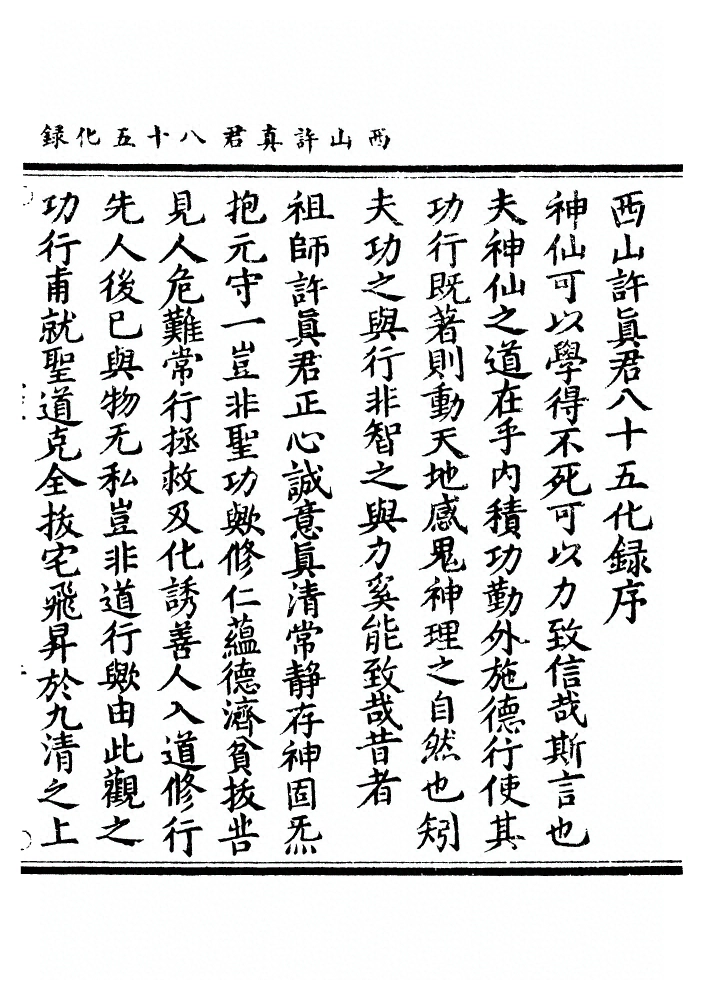 西山許真君八十五化録
西山許眞君八十五化録序
神仙可以學得不死可以力致信哉斯言也
夫神仙之道在乎内積功勤外施德行使其
功行既著則動天地感鬼神理之自然也矧
夫功之與行非智之與力奚能致哉昔者
祖師許眞君正心誠意眞清常静存神固炁
抱元守一豈非聖功歟修仁蘊德濟貧拔苦
見人危難常行拯救及化誘善人入道修行
先人後已與物无私豈非道行歟由此觀之
功行甫就聖道克全拔宅飛昇於九清之上